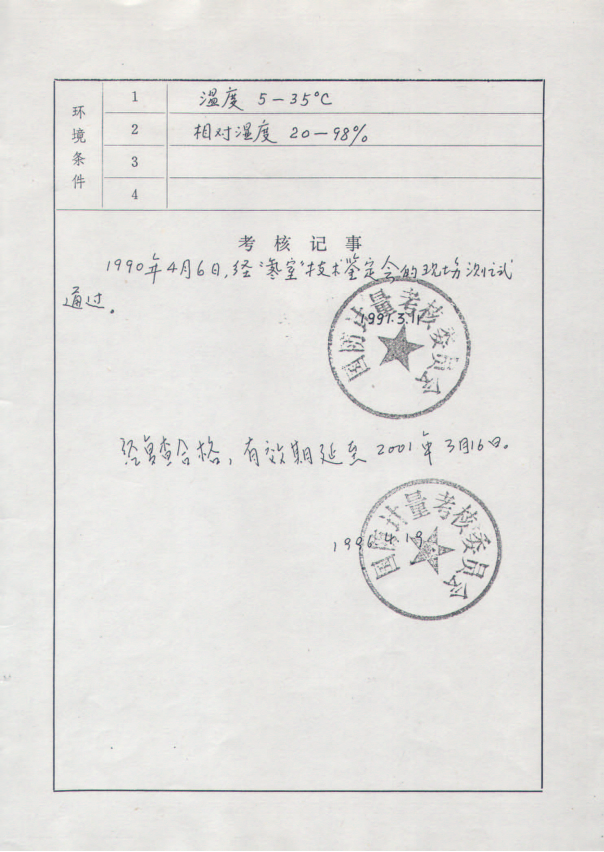 环境条件
1 温度 5-35℃
2 相对湿度 20-98%
3
4
考核记事
1990年4月6日,经"氡室"技术鉴定会的现场测试
通过。
国防计量考核委员会
1991.3.11
经复查合格,有效期延至2001年3月16日。
国防计量考核委员会
1996.4.19